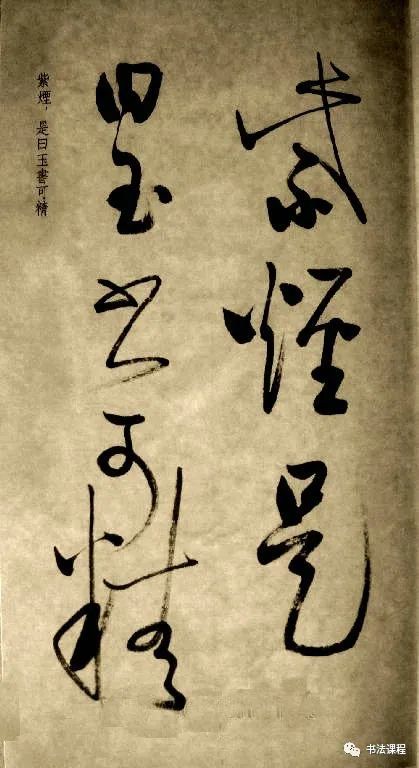 紫煙是
曰玉書可精
紫煙,是曰玉書可精
书法课程